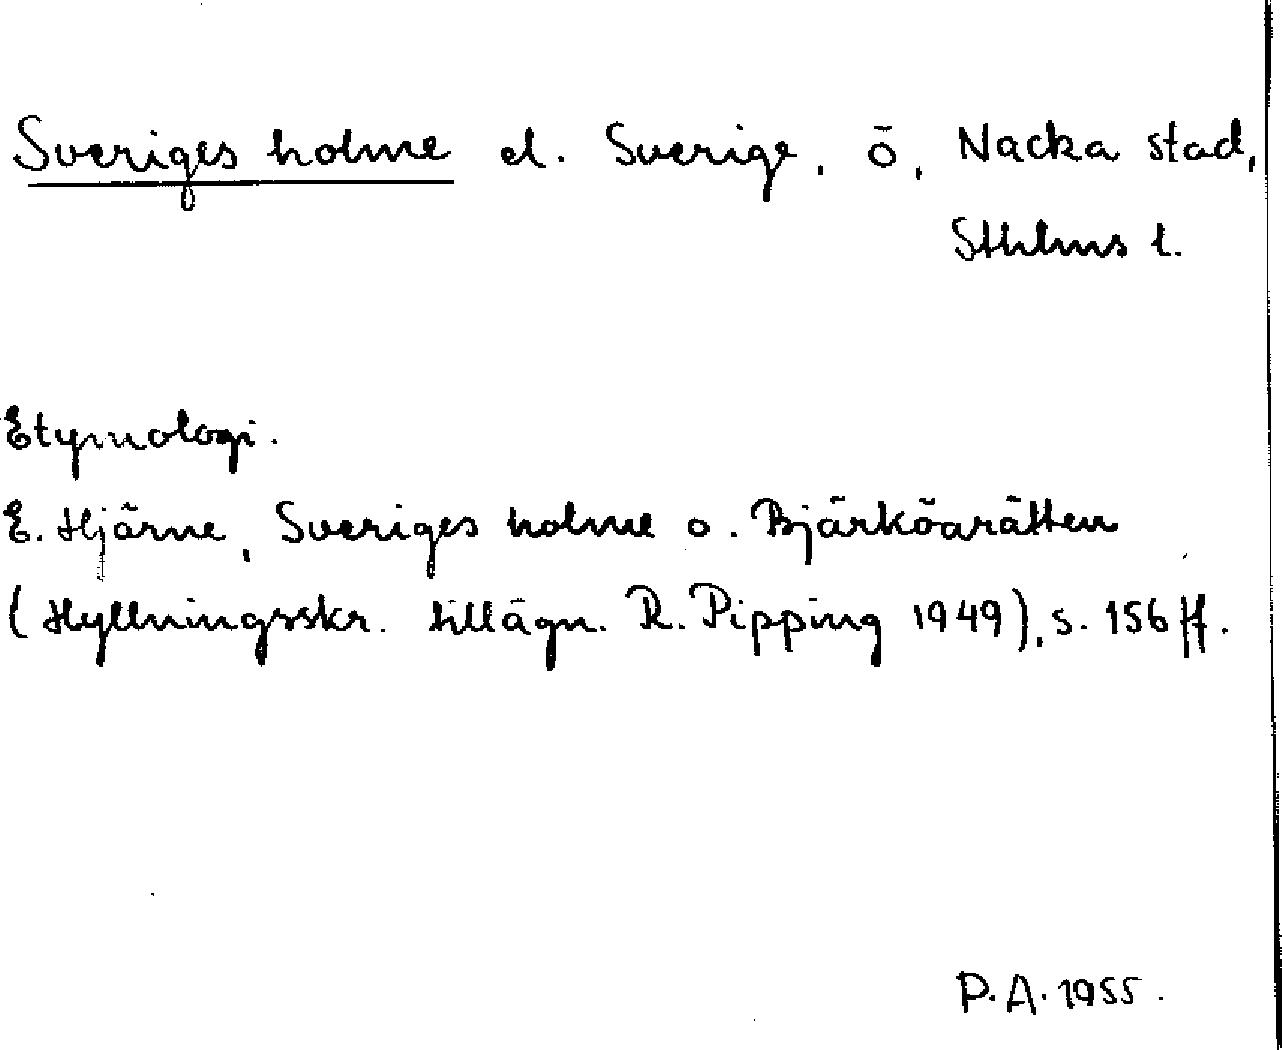 Sveriges holme el. Sverige, ö, Nacka stad,
Sthlms l.
Etymologi.
E. Hjärne, Sveriges holme o. Bjärköarätten
(Hyllningsskr. tillägn. R. Pipping 1949), s. 156 ff.
P.A. 1955.